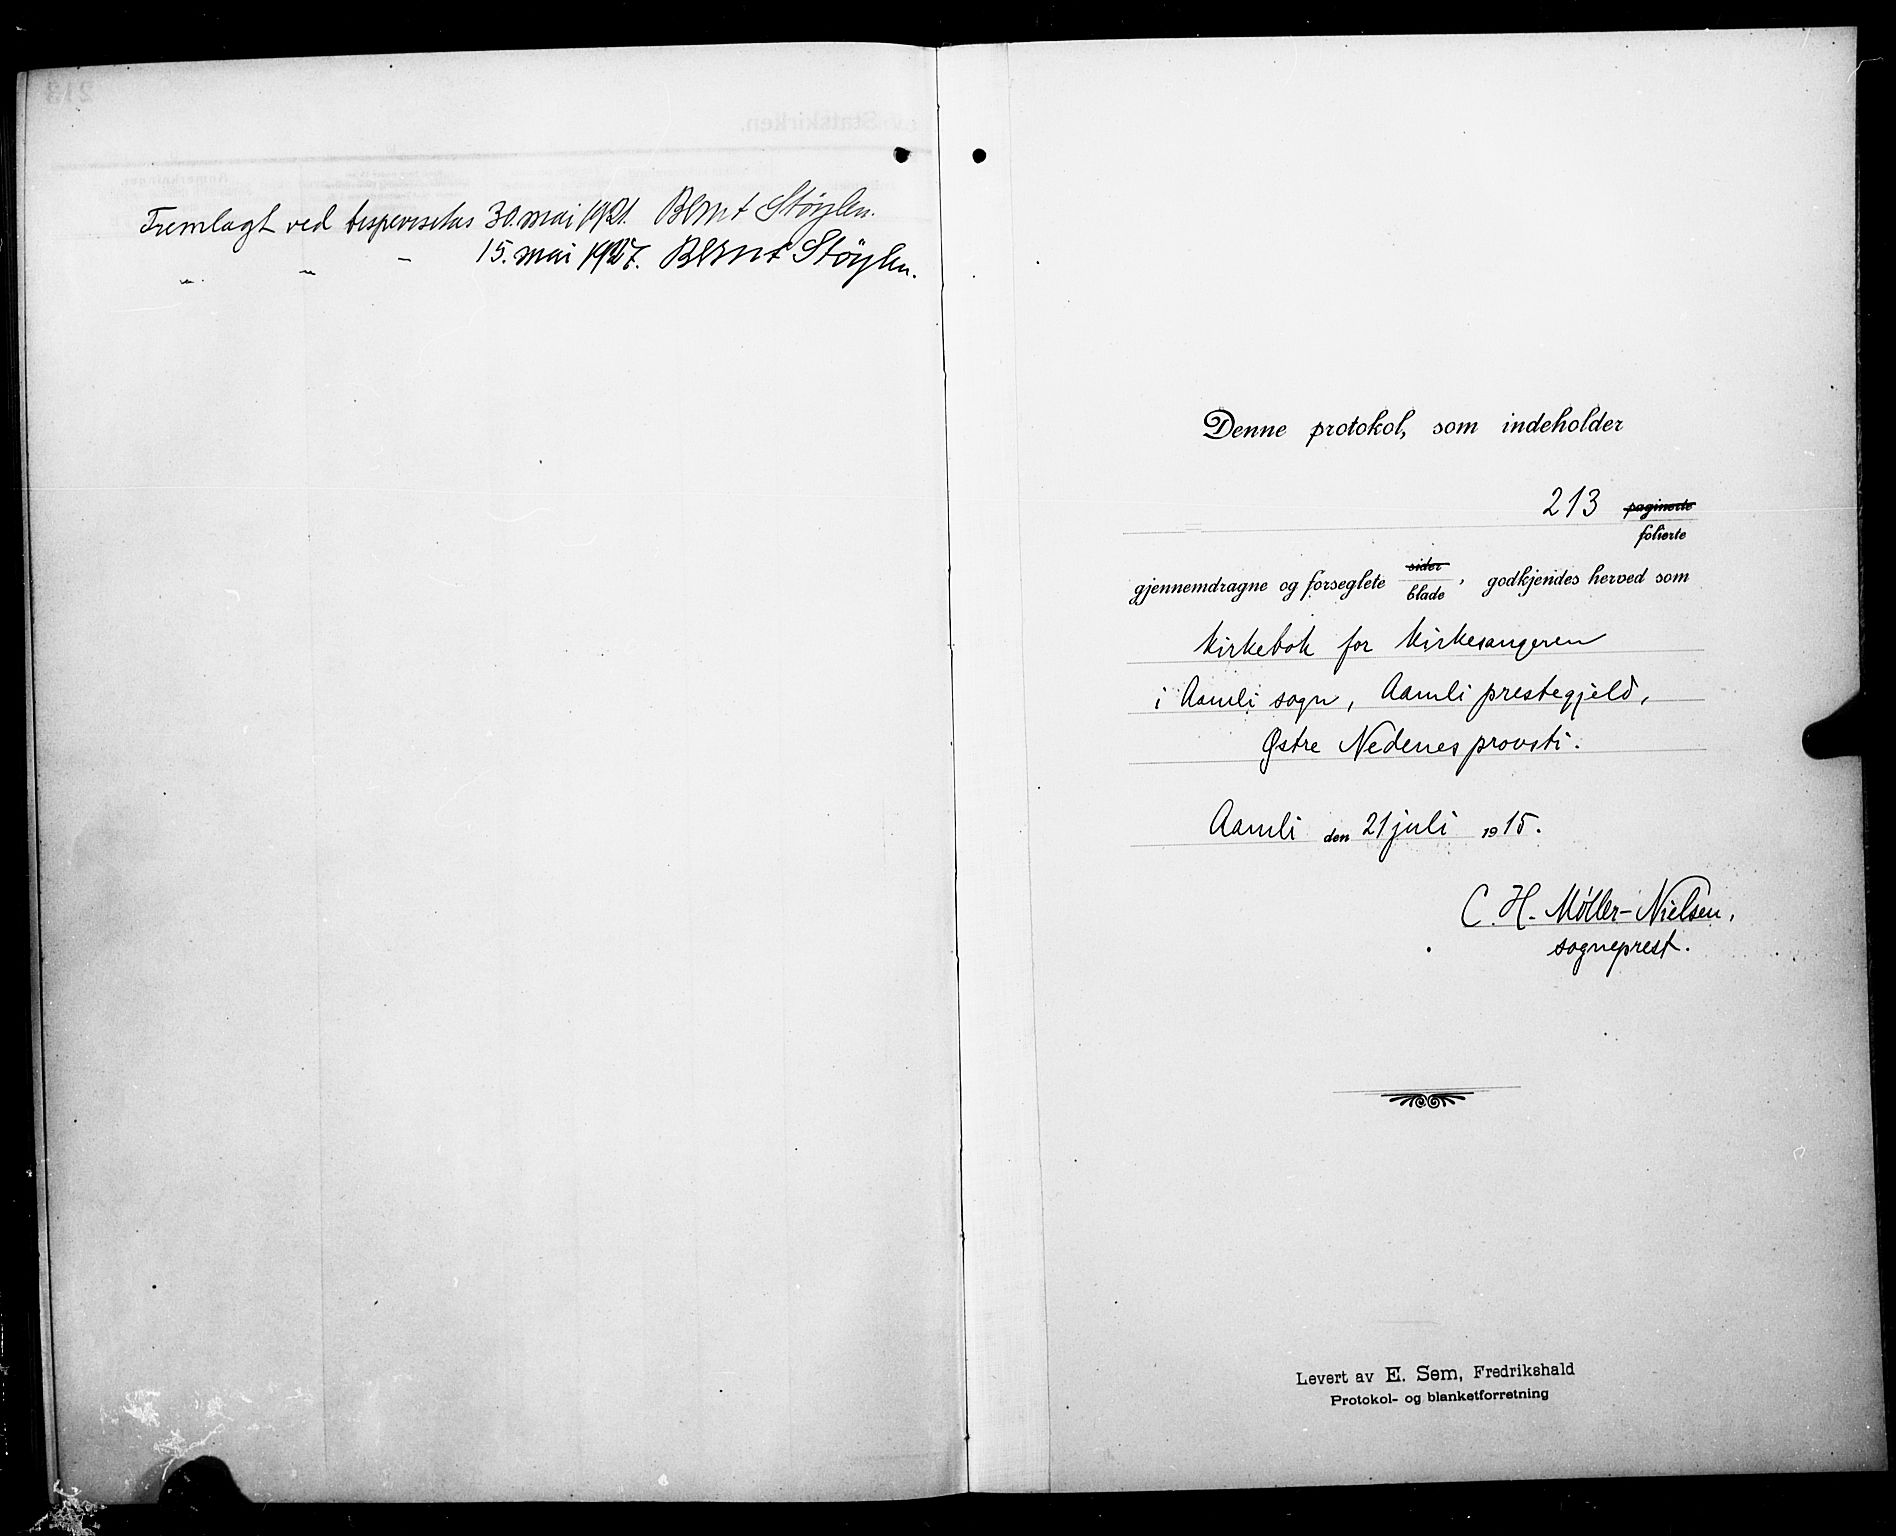 213
Statskirken.
Fremlagt ved bispevisitas 30. mai 1921. Bernt Støylen.
" " - 15. mai 1927. Bernt Støylen.
Denne protokol, som indeholder
213 paginerte
folierte
gjennemdragne og forseglete sider
blade, godkjendes herved som
kirkebok for kirkesangeren
i Aamli sogn, Aamli prestegjeld,
Østre Nedenes provsti.
Aamli den 21 juli 1915.
C. H. Møller-Nielsen,
sogneprest.
Levert av E. Sem, Fredrikshald
Protokol- og blanketforretning